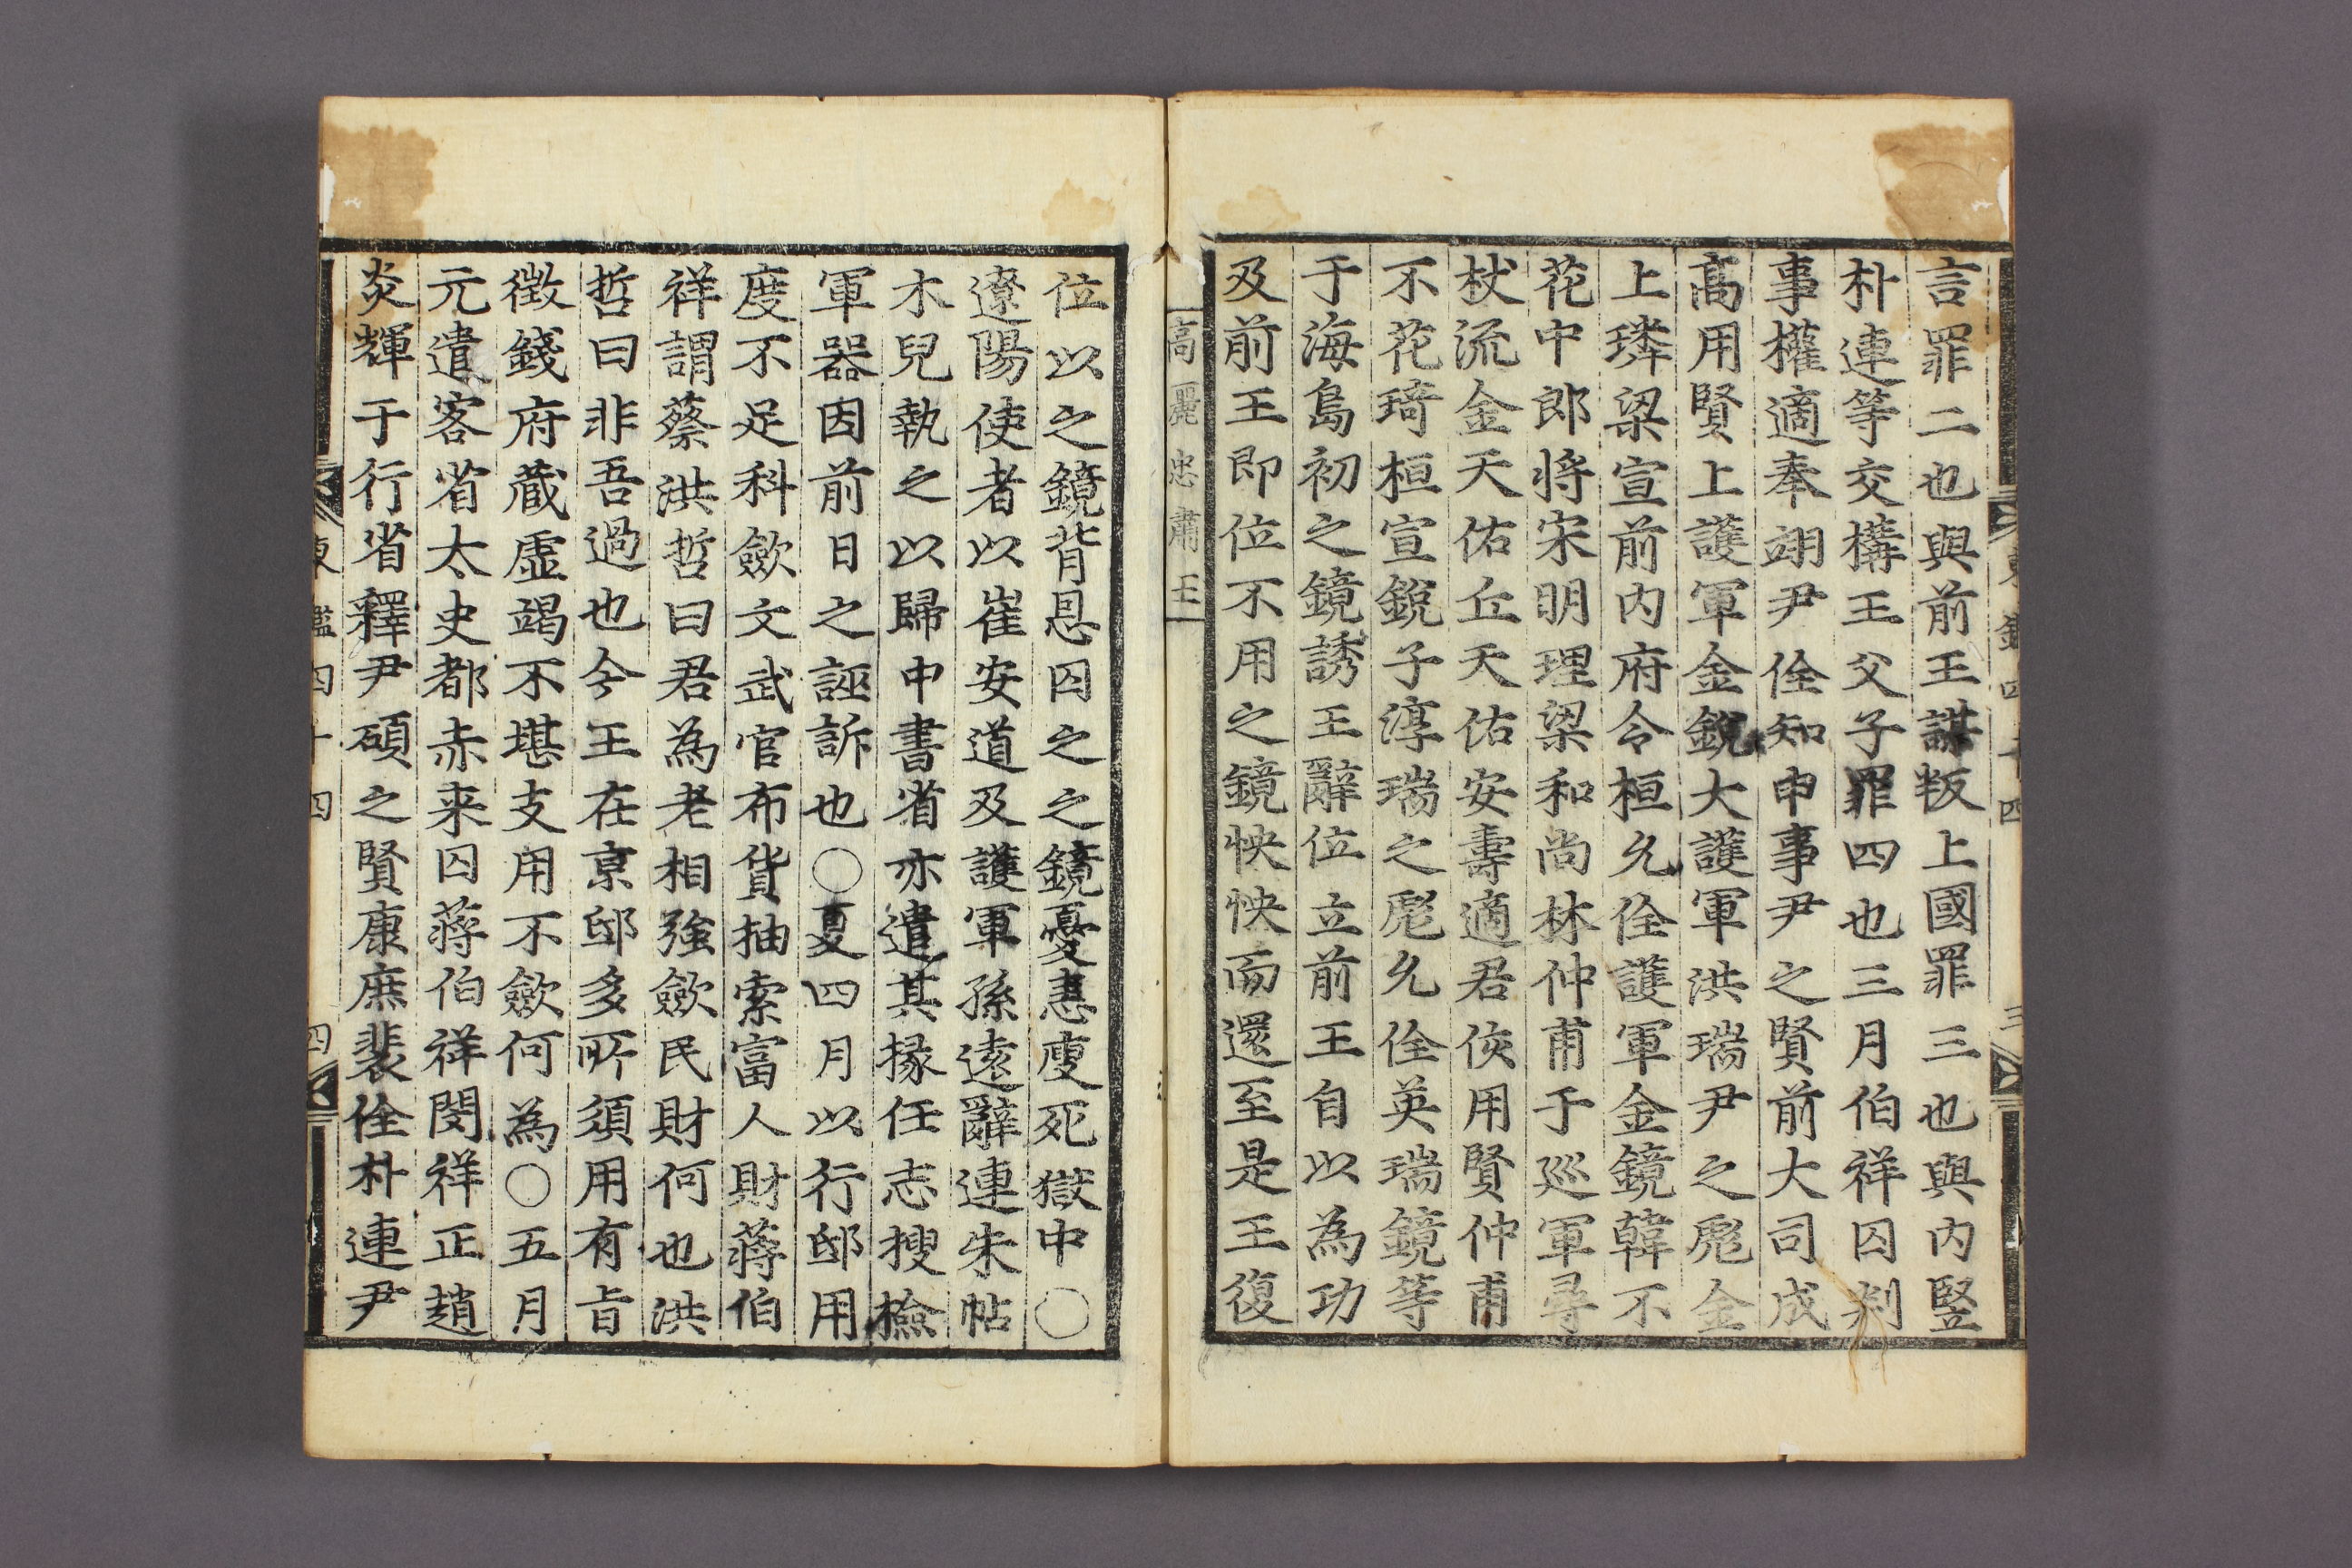 言罪二也與前王謀叛上國罪三也與內竪
朴連等交構王父子罪四也三月伯祥囚判
事權適奉翊尹佺知申事尹之賢前大司成
高用賢上護軍金銳大護軍洪瑞尹之彪金
上璘梁宣前內府令桓允佺護軍金鏡韓不
花中郎將宋明理梁和尚林仲甫于巡軍尋
杖流金天佑丘天佑安壽適君侅用賢仲甫
不花琦桓宣銳子淳瑞之彪允佺英瑞鏡等
于海島初之鏡誘王辭位立前王自以為功
及前王即位不用之鏡怏怏而還至是王復
高麗忠肅王
位以之鏡背恩囚之之鏡憂恚瘦死獄中○
遼陽使者以崔安道及護軍孫遠辭連朱帖
木兒執之以歸中書省亦遣其掾任志搜檢
軍器因前日之誣訴也○夏四月以行邸用
度不足科歛文武官布貨抽索富人財蔣伯
祥謂蔡洪哲曰君為老相強歛民財何也洪
哲曰非吾過也今王在京邸多所須用有旨
徵錢府蔵虛竭不堪支用不歛何為○五月
元遣客省太史都赤来囚蔣伯祥閔祥正趙
炎輝于行省釋尹碩之賢康庶裴佺朴連尹
東鑑四十四 四